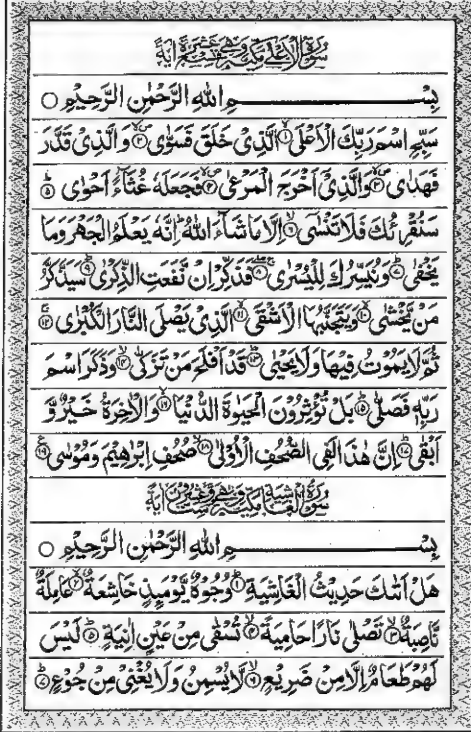 سُوْرَةُ الْاَعْلٰى مَكِّيَّةٌ وَّهِىَ تِسْعَ عَشْرَةَ اٰيَةً
بِسْمِ اللهِ الرَّحْمٰنِ الرَّحِيْمِ ○
سَبِّحِ اسْمَ رَبِّكَ الْاَعْلَى ۙ﴿۱﴾ الَّذِىْ خَلَقَ فَسَوّٰى ۪ۙ﴿۲﴾ وَالَّذِىْ قَدَّرَ
فَهَدٰى ۪ۙ﴿۳﴾ وَالَّذِىْۤ اَخْرَجَ الْمَرْعٰى ۪ۙ﴿۴﴾ فَجَعَلَهٗ غُثَآءً اَحْوٰى ؕ﴿۵﴾
سَنُقْرِئُكَ فَلَا تَنْسٰٓى ۙ﴿۶﴾ اِلَّا مَا شَآءَ اللهُ ؕ اِنَّهٗ يَعْلَمُ الْجَهْرَ وَمَا
يَخْفٰى ؕ﴿۷﴾ وَنُيَسِّرُكَ لِلْيُسْرٰى ۚۖ﴿۸﴾ فَذَكِّرْ اِنْ نَّفَعَتِ الذِّكْرٰى ؕ﴿۹﴾ سَيَذَّكَّرُ
مَنْ يَّخْشٰى ۙ﴿۱۰﴾ وَيَتَجَنَّبُهَا الْاَشْقَى ۙ﴿۱۱﴾ الَّذِىْ يَصْلَى النَّارَ الْكُبْرٰى ۚ﴿۱۲﴾
ثُمَّ لَا يَمُوْتُ فِيْهَا وَلَا يَحْيٰى ؕ﴿۱۳﴾ قَدْ اَفْلَحَ مَنْ تَزَكّٰى ۙ﴿۱۴﴾ وَذَكَرَ اسْمَ
رَبِّهٖ فَصَلّٰى ؕ﴿۱۵﴾ بَلْ تُؤْثِرُوْنَ الْحَيٰوةَ الدُّنْيَا ۖ﴿۱۶﴾ وَالْاٰخِرَةُ خَيْرٌ وَّ
اَبْقٰى ؕ﴿۱۷﴾ اِنَّ هٰذَا لَفِى الصُّحُفِ الْاُوْلٰى ۙ﴿۱۸﴾ صُحُفِ اِبْرٰهِيْمَ وَمُوْسٰى ﴿۱۹﴾
سُوْرَةُ الْغَاشِيَةِ مَكِّيَّةٌ وَّهِىَ سِتٌّ وَّعِشْرُوْنَ اٰيَةً
بِسْمِ اللهِ الرَّحْمٰنِ الرَّحِيْمِ ○
هَلْ اَتٰىكَ حَدِيْثُ الْغَاشِيَةِ ؕ﴿۱﴾ وُجُوْهٌ يَّوْمَئِذٍ خَاشِعَةٌ ۙ﴿۲﴾ عَامِلَةٌ
نَّاصِبَةٌ ۙ﴿۳﴾ تَصْلٰى نَارًا حَامِيَةً ۙ﴿۴﴾ تُسْقٰى مِنْ عَيْنٍ اٰنِيَةٍ ؕ﴿۵﴾ لَيْسَ
لَهُمْ طَعَامٌ اِلَّا مِنْ ضَرِيْعٍ ۙ﴿۶﴾ لَّا يُسْمِنُ وَلَا يُغْنِىْ مِنْ جُوْعٍ ؕ﴿۷﴾